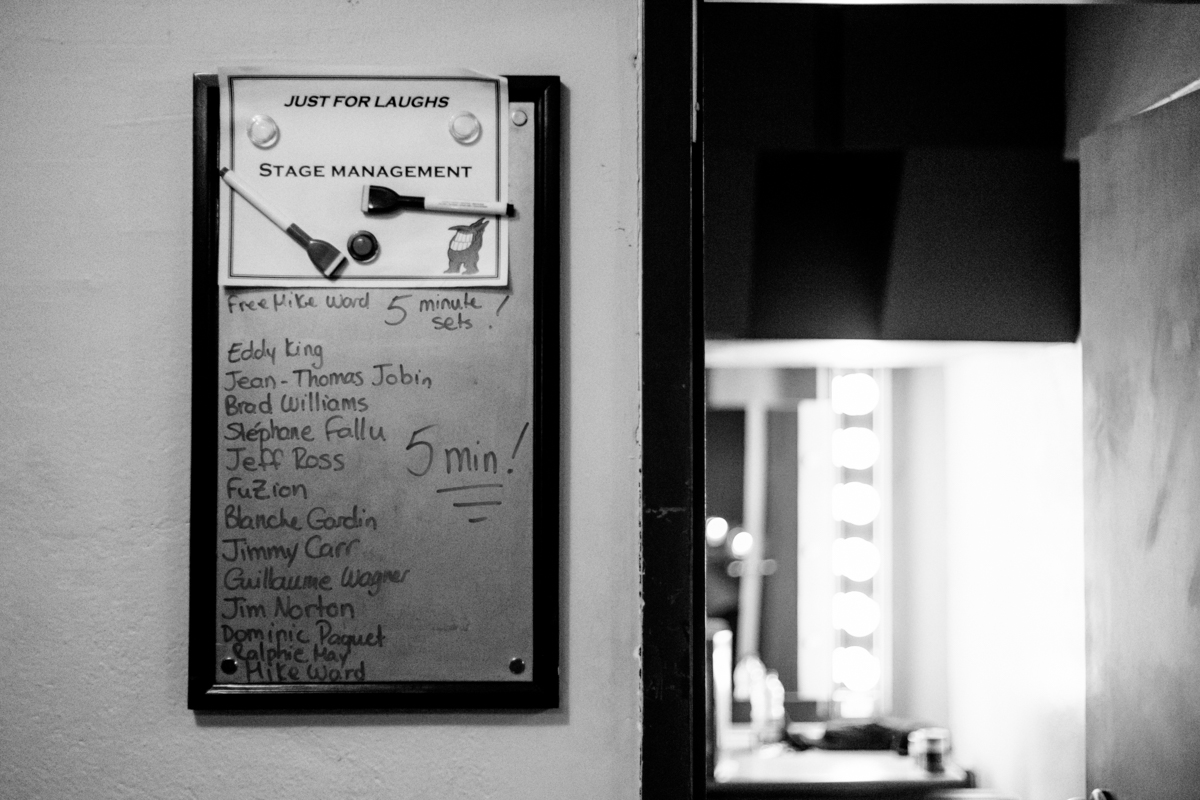 JUST FOR LAUGHS
STAGE MANAGEMENT
Free Mike Ward 5 minute sets!
Eddy King
Jean-Thomas Jobin
Brad Williams
Stéphane Fallu
Jeff Ross
5 min!
FuZion
Blanche Gardin
Jimmy Carr
Guillaume Wagner
Jim Norton
Dominic Paquet
Ralphie May
Mike Ward